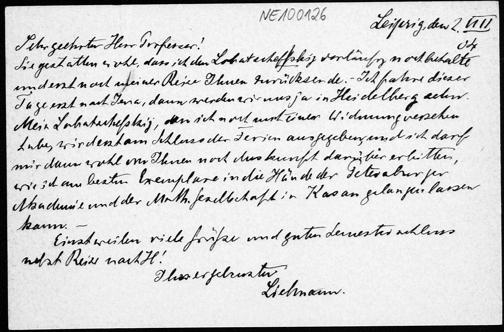 NE100126
Leipzig, den 2. VIII
04
Sehr geehrter Herr Professor!
Sie gestatten wohl, dass ich den Lobatscheffskij vorläufig noch behalte
und erst nach meiner Reise Ihnen zurücksende. - Ich fahre dieser
Tage erst nach Jena, dann werden wir uns ja in Heidelberg sehn.
Mein Lobatschefskij, den ich noch mit einer Widmung versehen
habe, wird erst am Schluss der Ferien ausgegeben und ich darf
mir dann wohl von Ihnen noch Auskunft darüber erbitten,
wie ich am besten Exemplare in die Hände der Petersburger
Akademie und der Math. Gesellschaft in Kasan gelangen lassen
kann. -
Einstweilen viele Grüße und guten Semesterschluss
nebst Reise nach H!
Ihr ergebenster
Liebmann.